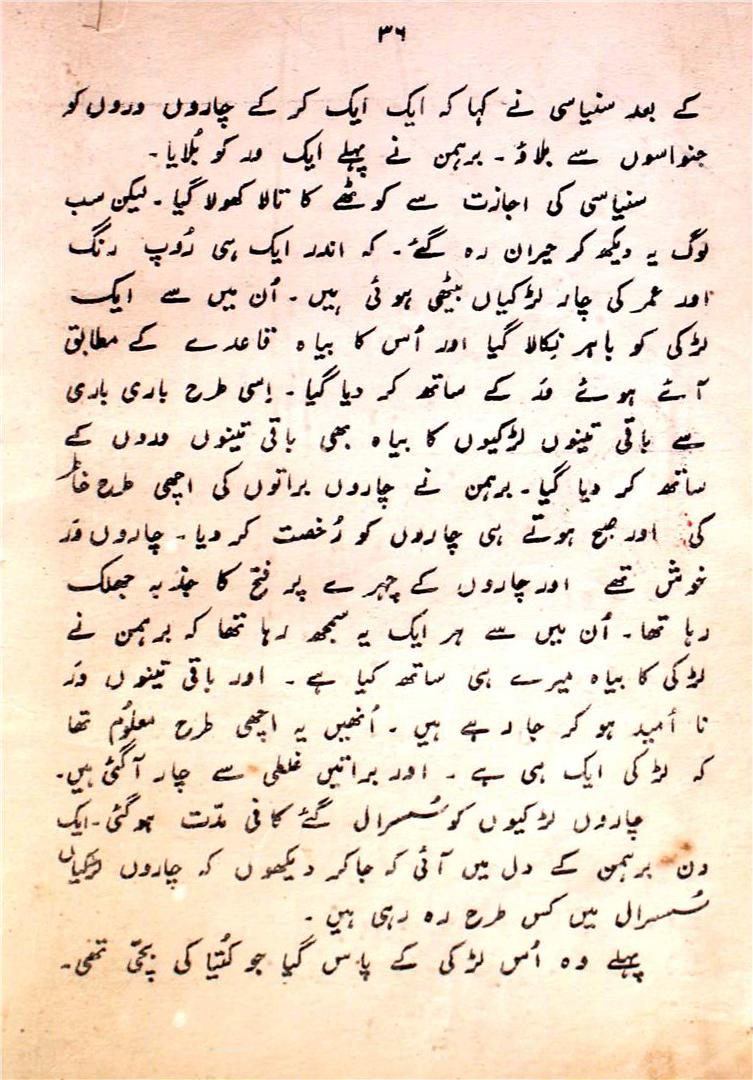 ۳۶
کے بعد سنیاسی نے کہا کہ ایک ایک کر کے چاروں وروں کو
جنواسوں سے بلاؤ ۔ برہمن نے پہلے ایک ور کو بُلایا ۔
سنیاسی کی اجازت سے کوٹھے کا تالا کھولا گیا ۔ لیکن سب
لوگ یہ دیکھ کر حیران رہ گئے ۔ کہ اندر ایک ہی رُوپ رنگ
اور عمر کی چار لڑکیاں بیٹھی ہوئی ہیں ۔ اُن میں سے ایک
لڑکی کو باہر نکالا گیا اور اُس کا بیاہ قاعدے کے مطابق
آئے ہوئے ور کے ساتھ کر دیا گیا ۔ اِسی طرح باری باری
سے باقی تینوں لڑکیوں کا بیاہ بھی باقی تینوں وروں کے
ساتھ کر دیا گیا ۔ برہمن نے چاروں براتوں کی اچھی طرح خاطر
کی اور صبح ہوتے ہی چاروں کو رُخصت کر دیا ۔ چاروں وَر
خوش تھے اور چاروں کے چہرے پر فتح کا جذبہ جھلک
رہا تھا ۔ اُن میں سے ہر ایک یہ سمجھ رہا تھا کہ برہمن نے
لڑکی کا بیاہ میرے ہی ساتھ کیا ہے ۔ اور باقی تینوں وَر
نا اُمید ہو کر جا رہے ہیں ۔ اُنھیں یہ اچھی طرح معلُوم تھا
کہ لڑکی ایک ہی ہے ۔ اور براتیں غلطی سے چار آ گئی ہیں ۔
چاروں لڑکیوں کو سُسرال گئے کافی مدّت ہو گئی ۔ ایک
دن برہمن کے دل میں آئی کہ جا کر دیکھوں کہ چاروں لڑکیاں
سُسرال میں کس طرح رہ رہی ہیں ۔
پہلے وہ اُس لڑکی کے پاس گیا جو کُتیا کی بچّی تھی ۔